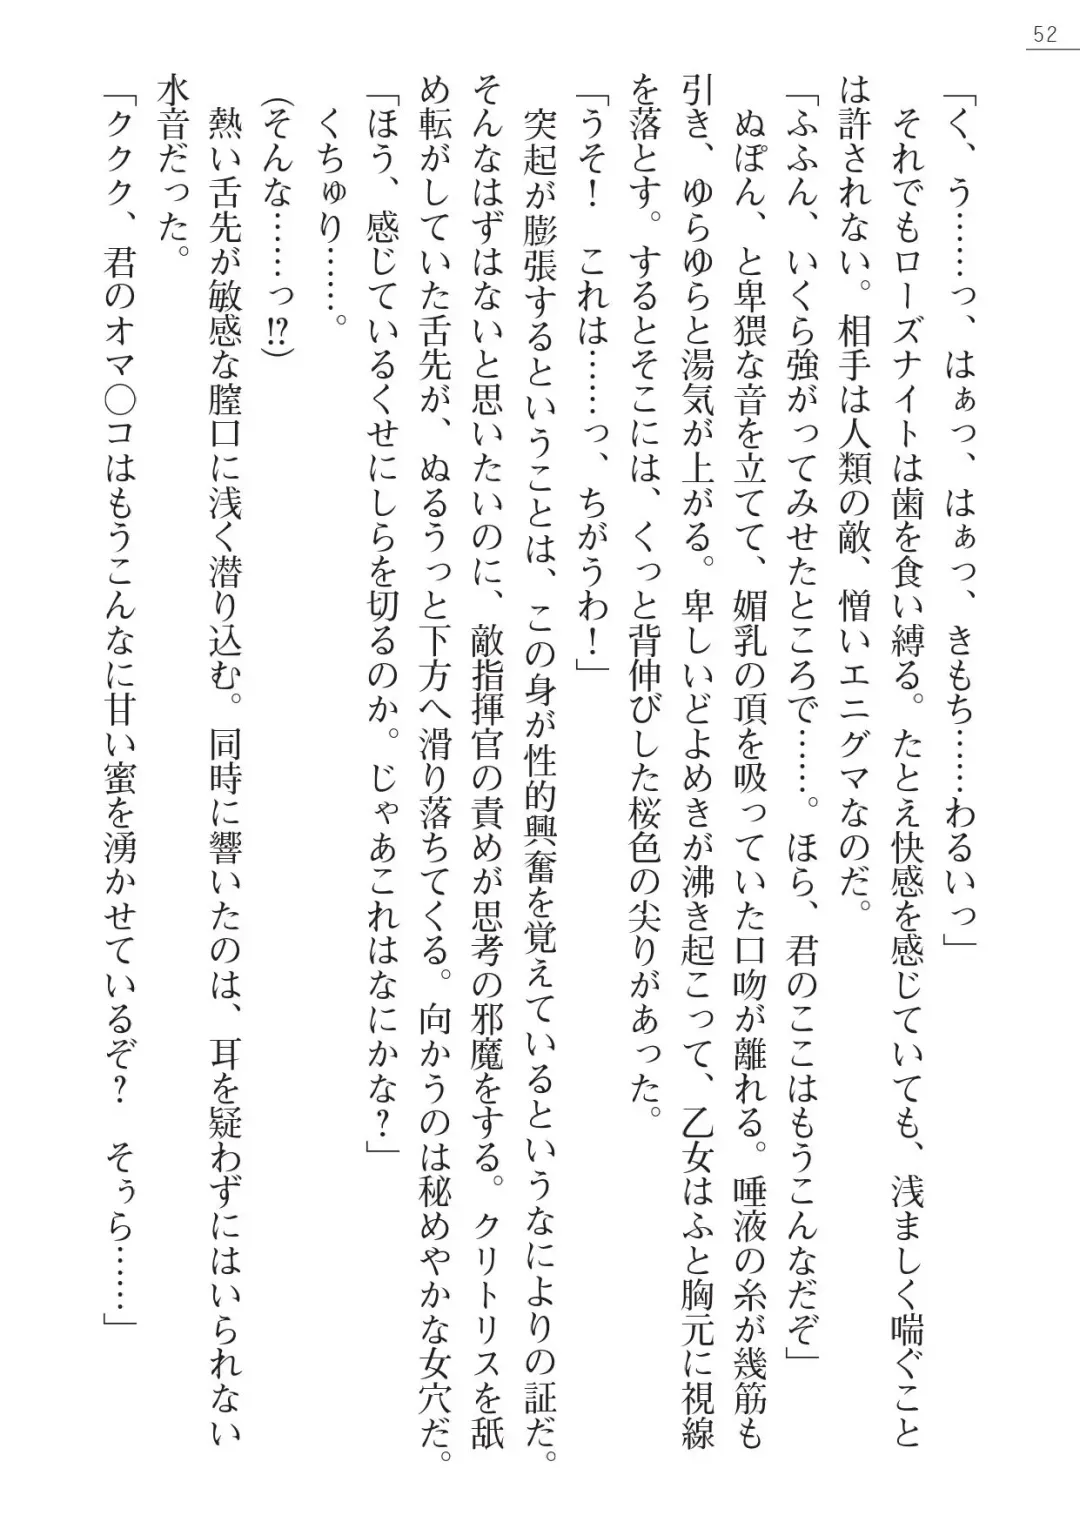 52
「く、う……っ、はぁっ、はぁっ、きもち……わるいっ」
それでもローズナイトは歯を食い縛る。たとえ快感を感じていても、浅ましく喘ぐこと
は許されない。相手は人類の敵、憎いエニグマなのだ。
「ふふん、いくら強がってみせたところで……。ほら、君のここはもうこんなだぞ」
ぬぽん、と卑猥な音を立てて、媚乳の頂を吸っていた口吻が離れる。唾液の糸が幾筋も
引き、ゆらゆらと湯気が上がる。卑しいどよめきが沸き起こって、乙女はふと胸元に視線
を落とす。するとそこには、くっと背伸びした桜色の尖りがあった。
「うそ！　これは……っ、ちがうわ！」
突起が膨張するということは、この身が性的興奮を覚えているというなによりの証だ。
そんなはずはないと思いたいのに、敵指揮官の責めが思考の邪魔をする。クリトリスを舐
め転がしていた舌先が、ぬるうっと下方へ滑り落ちてくる。向かうのは秘めやかな女穴だ。
「ほう、感じているくせにしらを切るのか。じゃあこれはなにかな？」
くちゅり……。
(そんな……っ!?)
熱い舌先が敏感な膣口に浅く潜り込む。同時に響いたのは、耳を疑わずにはいられない
水音だった。
「ククク、君のオマ〇コはもうこんなに甘い蜜を湧かせているぞ？　そぅら……」